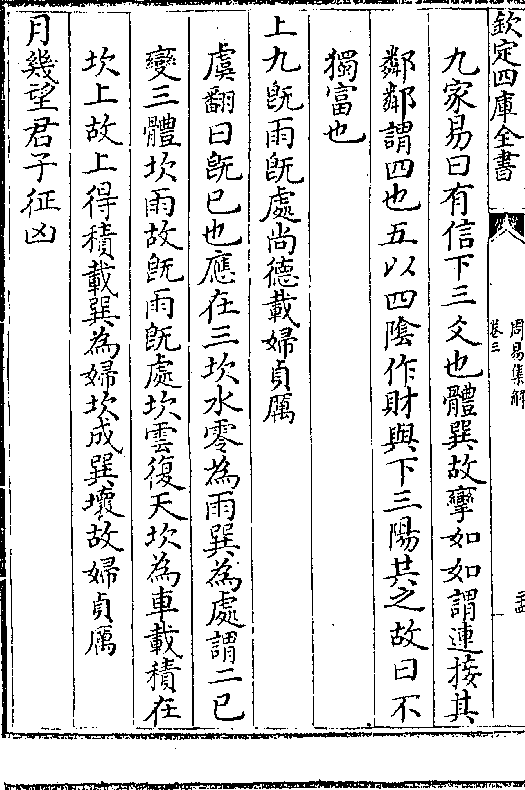 欽定四庫全書
周易集解
卷三
九家易曰有信下三爻也體巽故攣如如謂連接其
鄰鄰謂四也五以四陰作財與下三陽共之故曰不
獨富也
上九旣雨旣處尚德載婦貞厲
虞翻曰旣已也應在三坎水零為雨巽為處謂二已
變三體坎雨故旣雨旣處坎雲復天坎為車載積在
坎上故上得積載巽為婦坎成巽壞故婦貞厲
月幾望君子征凶